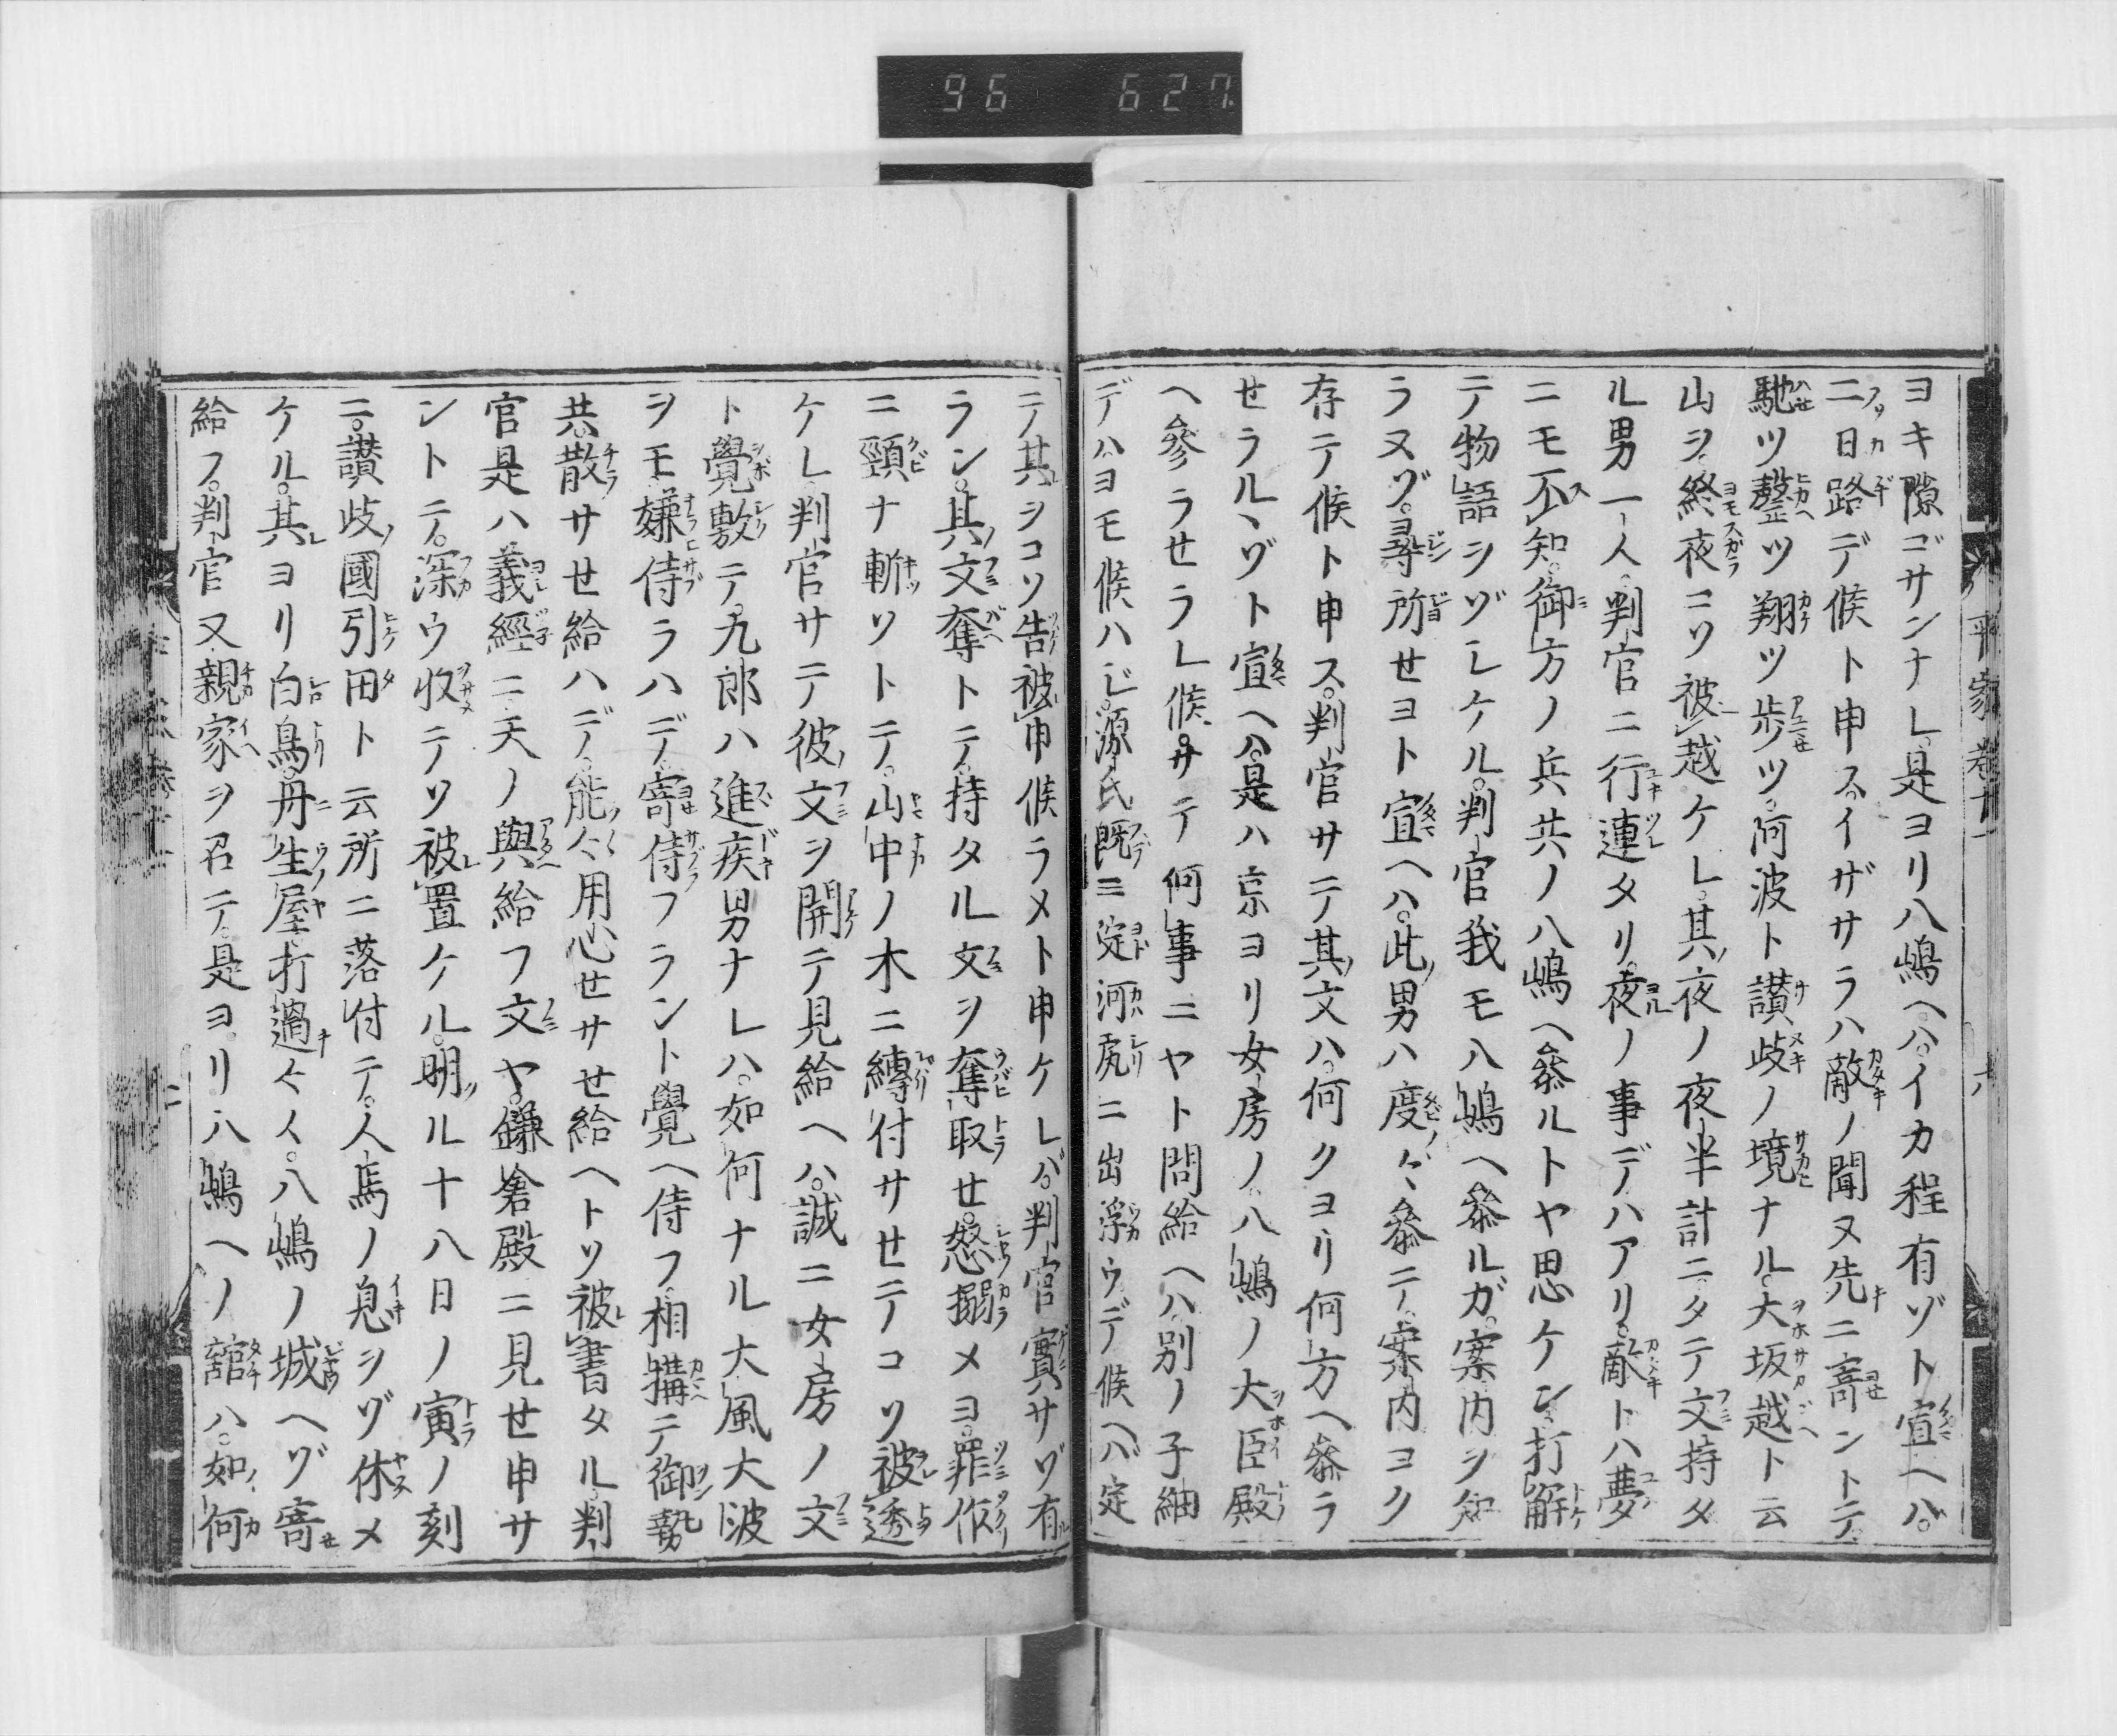 96 627
平家卷十一 六
ヨキ隙ゴサンナレ是ヨリ八嶋ヘハイカ程有ゾト宣ヘバ
二日路デ候ト申スイザサラハ敵ノ聞ヌ先ニ寄ントテ
馳ツ磬ツ翔ツ歩ツ阿波ト讃岐ノ境ナル大坂越ト云
山ヲ終夜コソ被越ケレ其夜ノ夜半計ニタテ文持タ
ル男一人判官ニ行連タリ夜ノ事デハアリ敵トハ夢
ニモ不知御方ノ兵共ノ八嶋ヘ參ルトヤ思ケン打解
テ物語シゾシケル判官我モ八嶋ヘ參ルガ案内ヲ知
ラヌゾ尋所セヨト宣ヘハ此男ハ度々參テ案内ヨク
存テ候ト申ス判官サテ其文ハ何クヨリ何方ヘ參ラ
セラルヽゾト宣ヘハ是ハ京ヨリ女房ノ八嶋ノ大臣殿
ヘ參ラセラレ候サテ何事ニヤト問給ヘハ別ノ子細
デハヨモ候ハジ源氏既ニ淀河尻ニ出浮ウデ候ヘバ定
テ其ヲコソ告被申候ラメト申ケレバ判官實サゾ有
ラン其文奪トテ持タル文ヲ奪取セ怒搦メヨ罪作
ニ頸ナ斬ソトテ山中ノ木ニ縛付サセテコソ被透
ケレ判官サテ彼文ヲ開テ見給ヘハ誠ニ女房ノ文
ト覺敷テ九郎ハ進疾男ナレハ如何ナル大風大波
ヲモ嫌侍ラハデ寄侍フラント覺ヘ侍フ相搆テ御勢
共散サセ給ハデ能々用心セサセ給ヘトソ被書タル判
官是ハ義經ニ天ノ與給フ文ヤ鎌倉殿ニ見せ申サ
ントテ深ウ收テソ被置ケル明ル十八日ノ寅ノ刻
ニ讃岐國引田ト云所ニ落付テ人馬ノ息ヲゾ休メ
ケル其ヨリ白鳥丹生屋打過々々八嶋ノ城ヘゾ寄
給フ判官又親家ヲ召テ是ヨリ八嶋ヘノ舘ハ如何